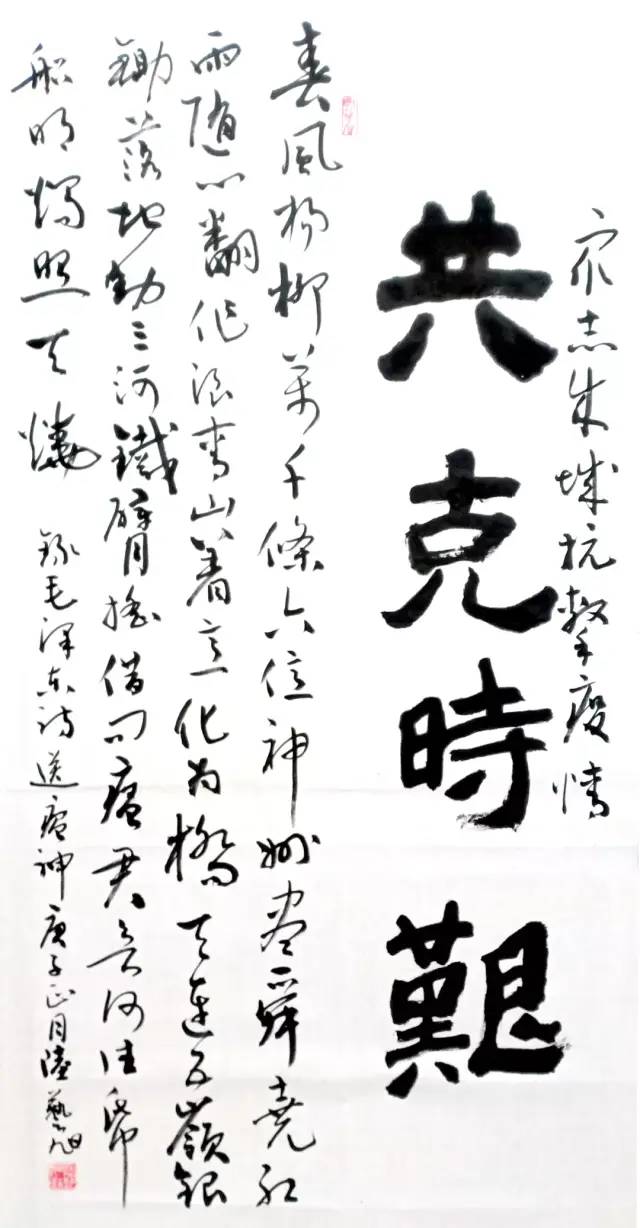 众志成城抗擊疫情
共克時艱
春風楊柳萬千條六億神州盡舜堯紅
雨隨心翻作浪青山着意化为橋天連五嶺銀
鋤落地動三河鐵臂搖借問瘟君欲何往紙
船明燭照天燒 錄毛澤東詩送瘟神庚子正月陸藝旭